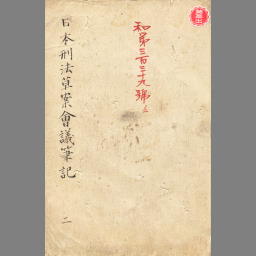 和第三百三十九號
日本刑法草案會議筆記
二